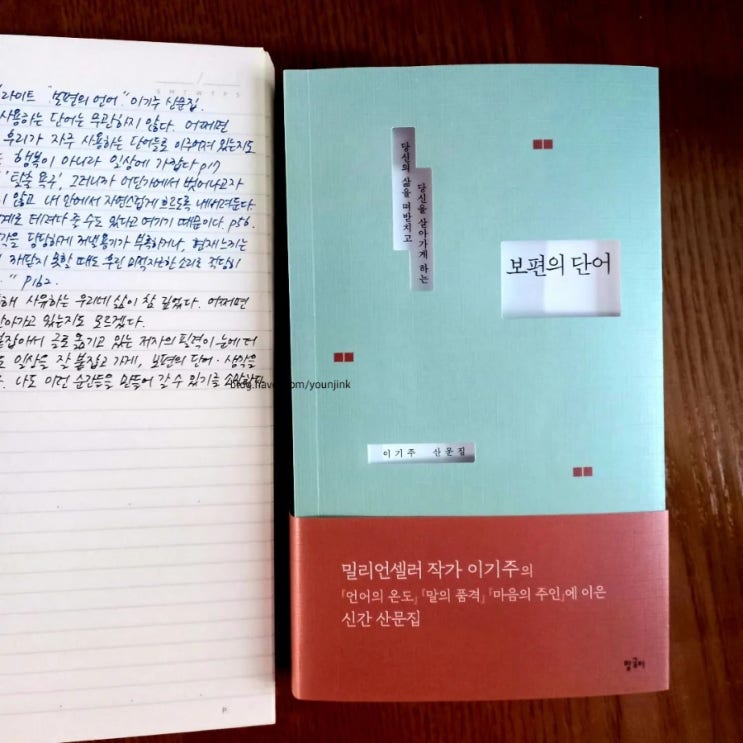 라이트 "보편의 언어" 이기주 산문집.
사용하는 단어는 무관하지 않다. 어쩌면
우리가 자주 사용하는 단어들로 이루어져 있는지도
행복이 아니라 일상에 가깝다 p17
'탈출 욕구', 그러니까 어딘가에서 벗어나고자
않고 내 안에서 자연스럽게 흐르도록 내버려둔다
데려다 줄 수도 있다고 여기기 때문이다. p56.
당당하게 꺼낼 용기가 부족하거나, 현재 느끼는
깨닫지 못할 때도 우린 미적지근한 소리로 적당히
" p162.
사유하는 우리네 삶이 참 깊었다. 어쩌면
있는지도 모르겠다.
붙잡아서 글로 옮기고 있는 저자의 필력이 눈에 더
일상을 잘 붙잡고 가게, 보편의 단어·생각을
나도 이런 순간들을 만들어 갈 수 있기를 소망한다
S M T W T F S
P.
당신의 삶을 떠받치고
당신을 살아가게 하는
보편의 단어
이기주 산문집
밀리언셀러 작가 이기주의
『언어의 온도』『말의 품격』『마음의 주인』에 이은
신간 산문집
말글터
blog.naver.com/younjink